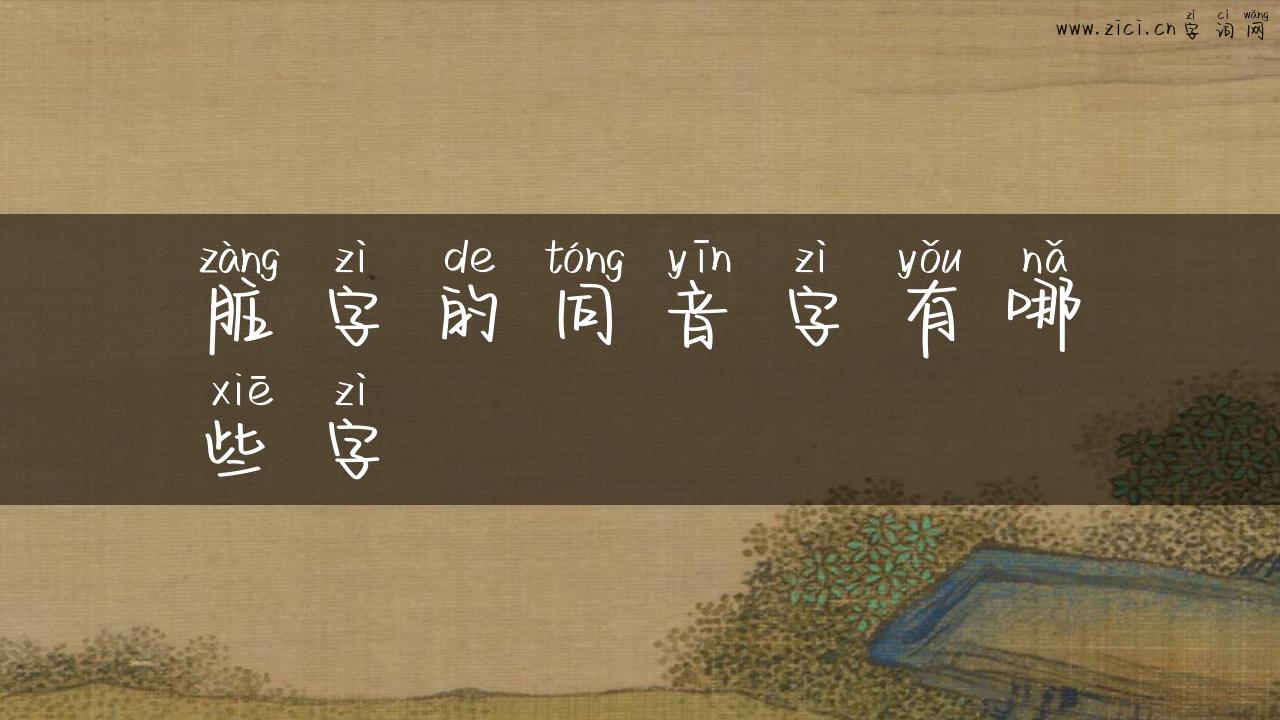 zì cí wǎng
www.zici.cn 字词网
zàng zì de tóng yīn zì yǒu nǎ
脏字的同音字有哪
xiē zì
些字